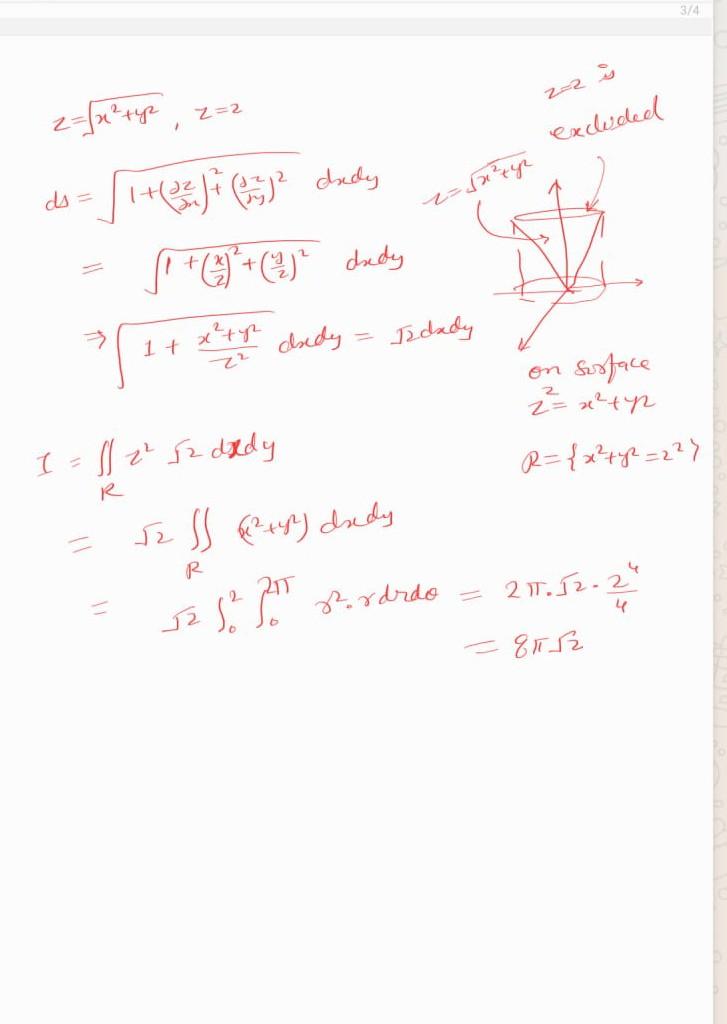 3/4
z=√x²+y² , z=2
z=2 is
excluded
z=√x²+y²
ds = √1+(∂z/∂x)²+(∂z/∂y)² dxdy
= √1+(x/z)²+(y/z)² dxdy
⇒ √1+ x²+y²/z² dxdy = √2 dxdy
on surface
z² = x²+y²
R={x²+y²=2²}
I = ∬_R z² √2 dxdy
= √2 ∬_R (x²+y²) dxdy
= √2 ∫₀² ∫₀^2π r².rdrdθ = 2π.√2.2⁴/4
= 8π√2